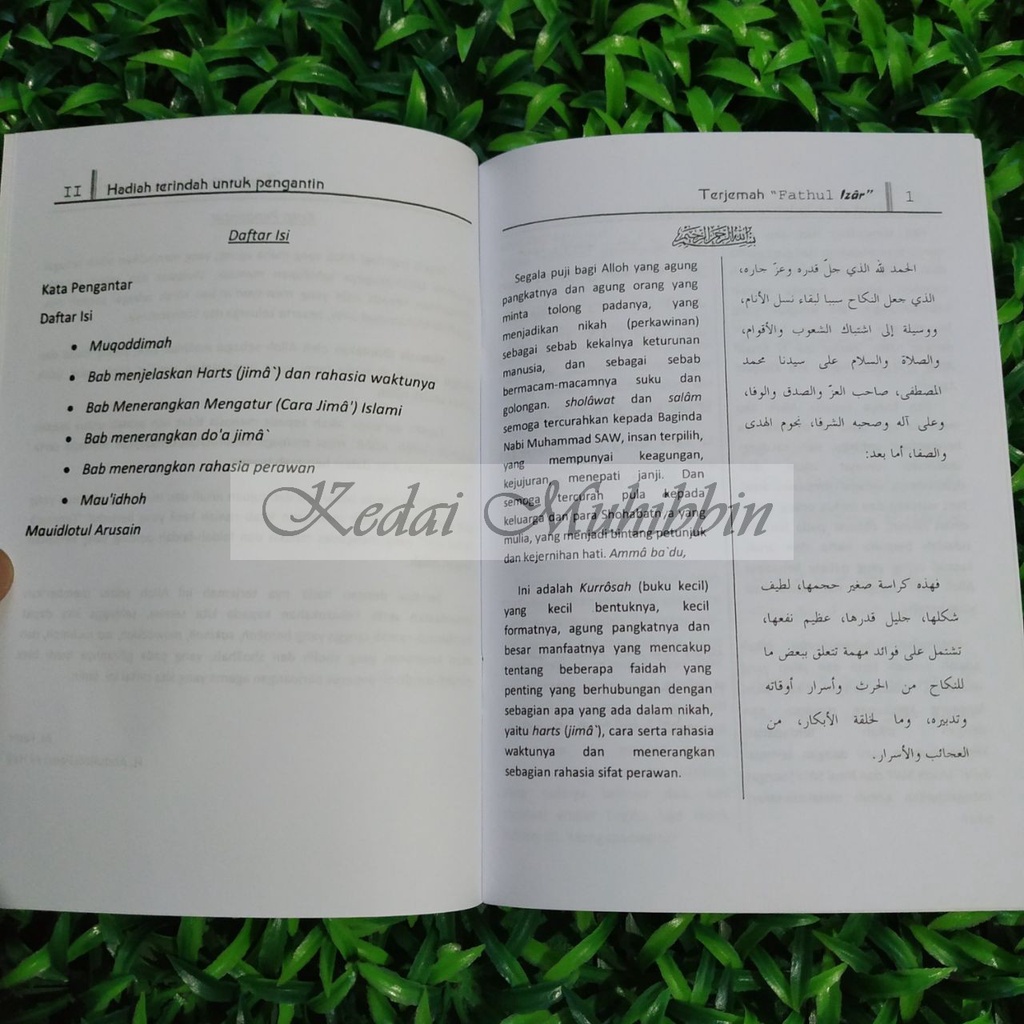 II Hadiah terindah untuk pengantin
Daftar Isi
Kata Pengantar
Daftar Isi
• Muqoddimah
• Bab menjelaskan Harts (jimâ`) dan rahasia waktunya
• Bab Menerangkan Mengatur (Cara Jimâ') Islami
• Bab menerangkan do'a jimâ`
• Bab menerangkan rahasia perawan
• Mau'idhoh
Mauidlotul Arusain
Terjemah "Fathul Izâr" 1
بسم الله الرحمن الرحيم
Segala puji bagi Alloh yang agung
pangkatnya dan agung orang yang
minta tolong padanya, yang
menjadikan nikah (perkawinan)
sebagai sebab kekalnya keturunan
manusia, dan sebagai sebab
bermacam-macamnya suku dan
golongan. sholâwat dan salâm
semoga tercurahkan kepada Baginda
Nabi Muhammad SAW, insan terpilih,
yang mempunyai keagungan,
kejujuran, menepati janji. Dan
semoga tercurah pula kepada
keluarga dan para Shohabatnya yang
mulia, yang menjadi bintang petunjuk
dan kejernihan hati. Ammâ ba`du,
Ini adalah Kurrôsah (buku kecil)
yang kecil bentuknya, kecil
formatnya, agung pangkatnya dan
besar manfaatnya yang mencakup
tentang beberapa faidah yang
penting yang berhubungan dengan
sebagian apa yang ada dalam nikah,
yaitu harts (jimâ`), cara serta rahasia
waktunya dan menerangkan
sebagian rahasia sifat perawan.
الحمد لله الذي جلّ قدره وعزّ جاره،
الذي جعل النكاح سببا لبقاء نسل الأنام،
ووسيلة إلى اشتباك الشعوب والأقوام،
والصلاة والسلام على سيدنا محمد
المصطفى، صاحب العزّ والصدق والوفا،
وعلى آله وصحبه الشرفا، نجوم الهدى
والصفا، أما بعد:
فهذه كراسة صغير حجمها، لطيف
شكلها، جليل قدرها، عظيم نفعها،
تشتمل على فوائد مهمة تتعلق ببعض ما
للنكاح من الحرث وأسرار أوقاته
وتدبيره، وما لخلقة الأبكار، من
العجائب والأسرار.
Kedai Muhibbin